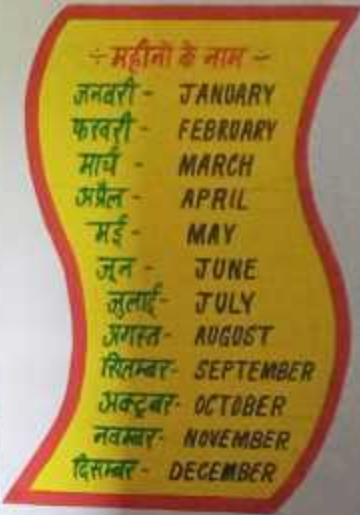 ÷ महीनो के नाम -
जनवरी - JANUARY
फरवरी - FEBRUARY
मार्च - MARCH
अप्रैल - APRIL
मई - MAY
जून - JUNE
जुलाई - JULY
अगस्त - AUGUST
सितम्बर - SEPTEMBER
अक्टूबर - OCTOBER
नवम्बर - NOVEMBER
दिसम्बर - DECEMBER